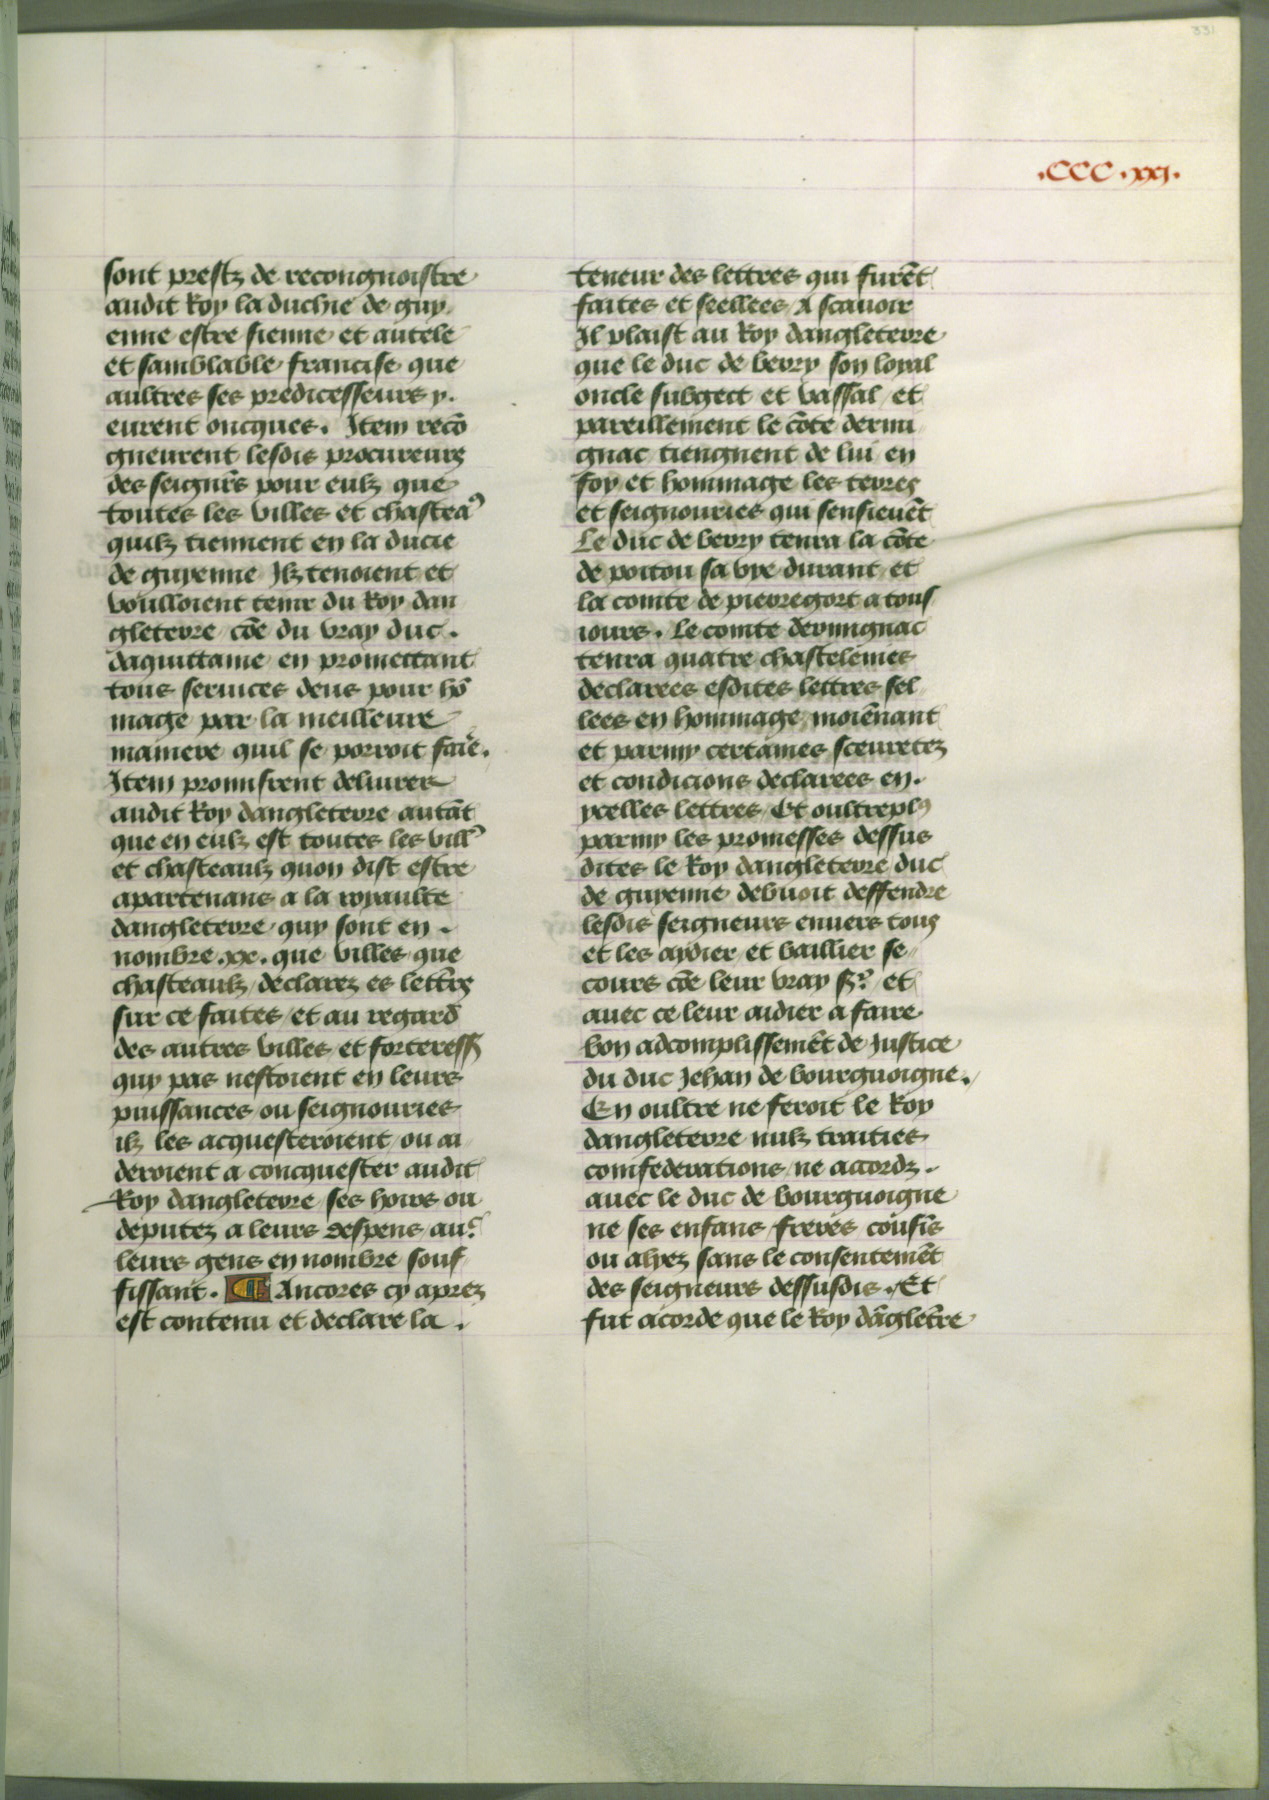 331
.CCC.xxj.
sont prestz de recongnoistre
audit Roy la duchie de guy
enne estre sienne et autele
et samblable francise que
aultres ses predicesseurs y.
eurent oncques. Item recõ
gneurent lesdis procureurs
des seignr̃s pour eulz que
toutes les villes et chasteaꝰ
quilz tiennent en la ducie
de guyenne Ilz tenoient et
voulloient tenir du Roy dan
gleterre cõe du vray duc.
daquittaine en promettant
tous seruices deus pour hõ
mage par la meilleure
maniere quil se porroit faiẽ.
Item promisrent deliurer
audit Roy dangleterre autãt
que en eulz est toutes les villꝰ
et chasteaulz quon dist estre
apartenans a la royaulte
dangleterre quy sont en.
nombre .xx. que villes que
chasteaulz declarez es lettrs̃
sur ce faites et au regard
des autres villes et forteress
quy pas nestoient en leurs
puissances ou seignouries
ilz les acquesteroient ou ai
deroient a concquester audit
Roy dangleterre ses hoirs ou
deputez a leurs despens auc̃
leurs gens en nombre souf
fissant. ¶ Ancores cy aprez
est contenu et declare la.
teneur des lettres qui furẽt
faites et seellees A scauoir
Il plaist au Roy dangleterre
que le duc de berry son loyal
oncle subgect et vassal et
pareillement le cõte dermi
gnac tiengnent de lui en
foy et hommage les terres
et seignouries qui sensieuẽt
Le duc de berry tenra la cõte
de poitou sa vye durant et
la comte de pierregort a tous
iours. Le comte dermignac
tenra quatre chastelenies
declarees esdites lettres sel
lees en hommage moiẽnant
et parmy certaines sceuretez
et condicions declarees en.
ycelles lettres Et oultreplꝰ
parmy les promesses dessus
dites le Roy dangleterre duc
de guyenne debuoit deffendre
lesdis seigneurs enuers tous
et les aydier et baillier se
cours cõe leur vray sr̃. et
auec ce leur aidier a faire
bon adcomplissemẽt de Justice
du duc Jehan de bourguoigne.
En oultre ne feroit le Roy
dangleterre nulz traities
comfederations ne accordz.
auec le duc de bourguoigne
ne ses enfans freres cousĩs
ou alyez sans le consentemẽt
des seigneurs dessusdis. Et
fut acorde que le Roy dãgletr̃e